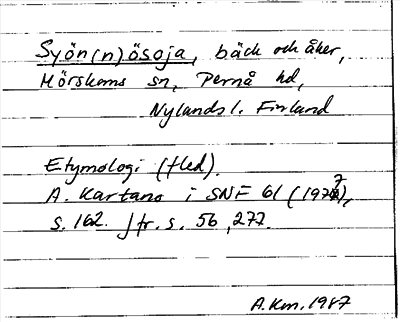 Syön(n)ösoja, bäck och åker,
Mörskoms sn, Pernå hd,
Nylands l. Finland
Etymologi (fled).
A. Kartano i SNF 61 (1977),
s. 162. Jfr. s. 56, 277.
A.Km. 1987